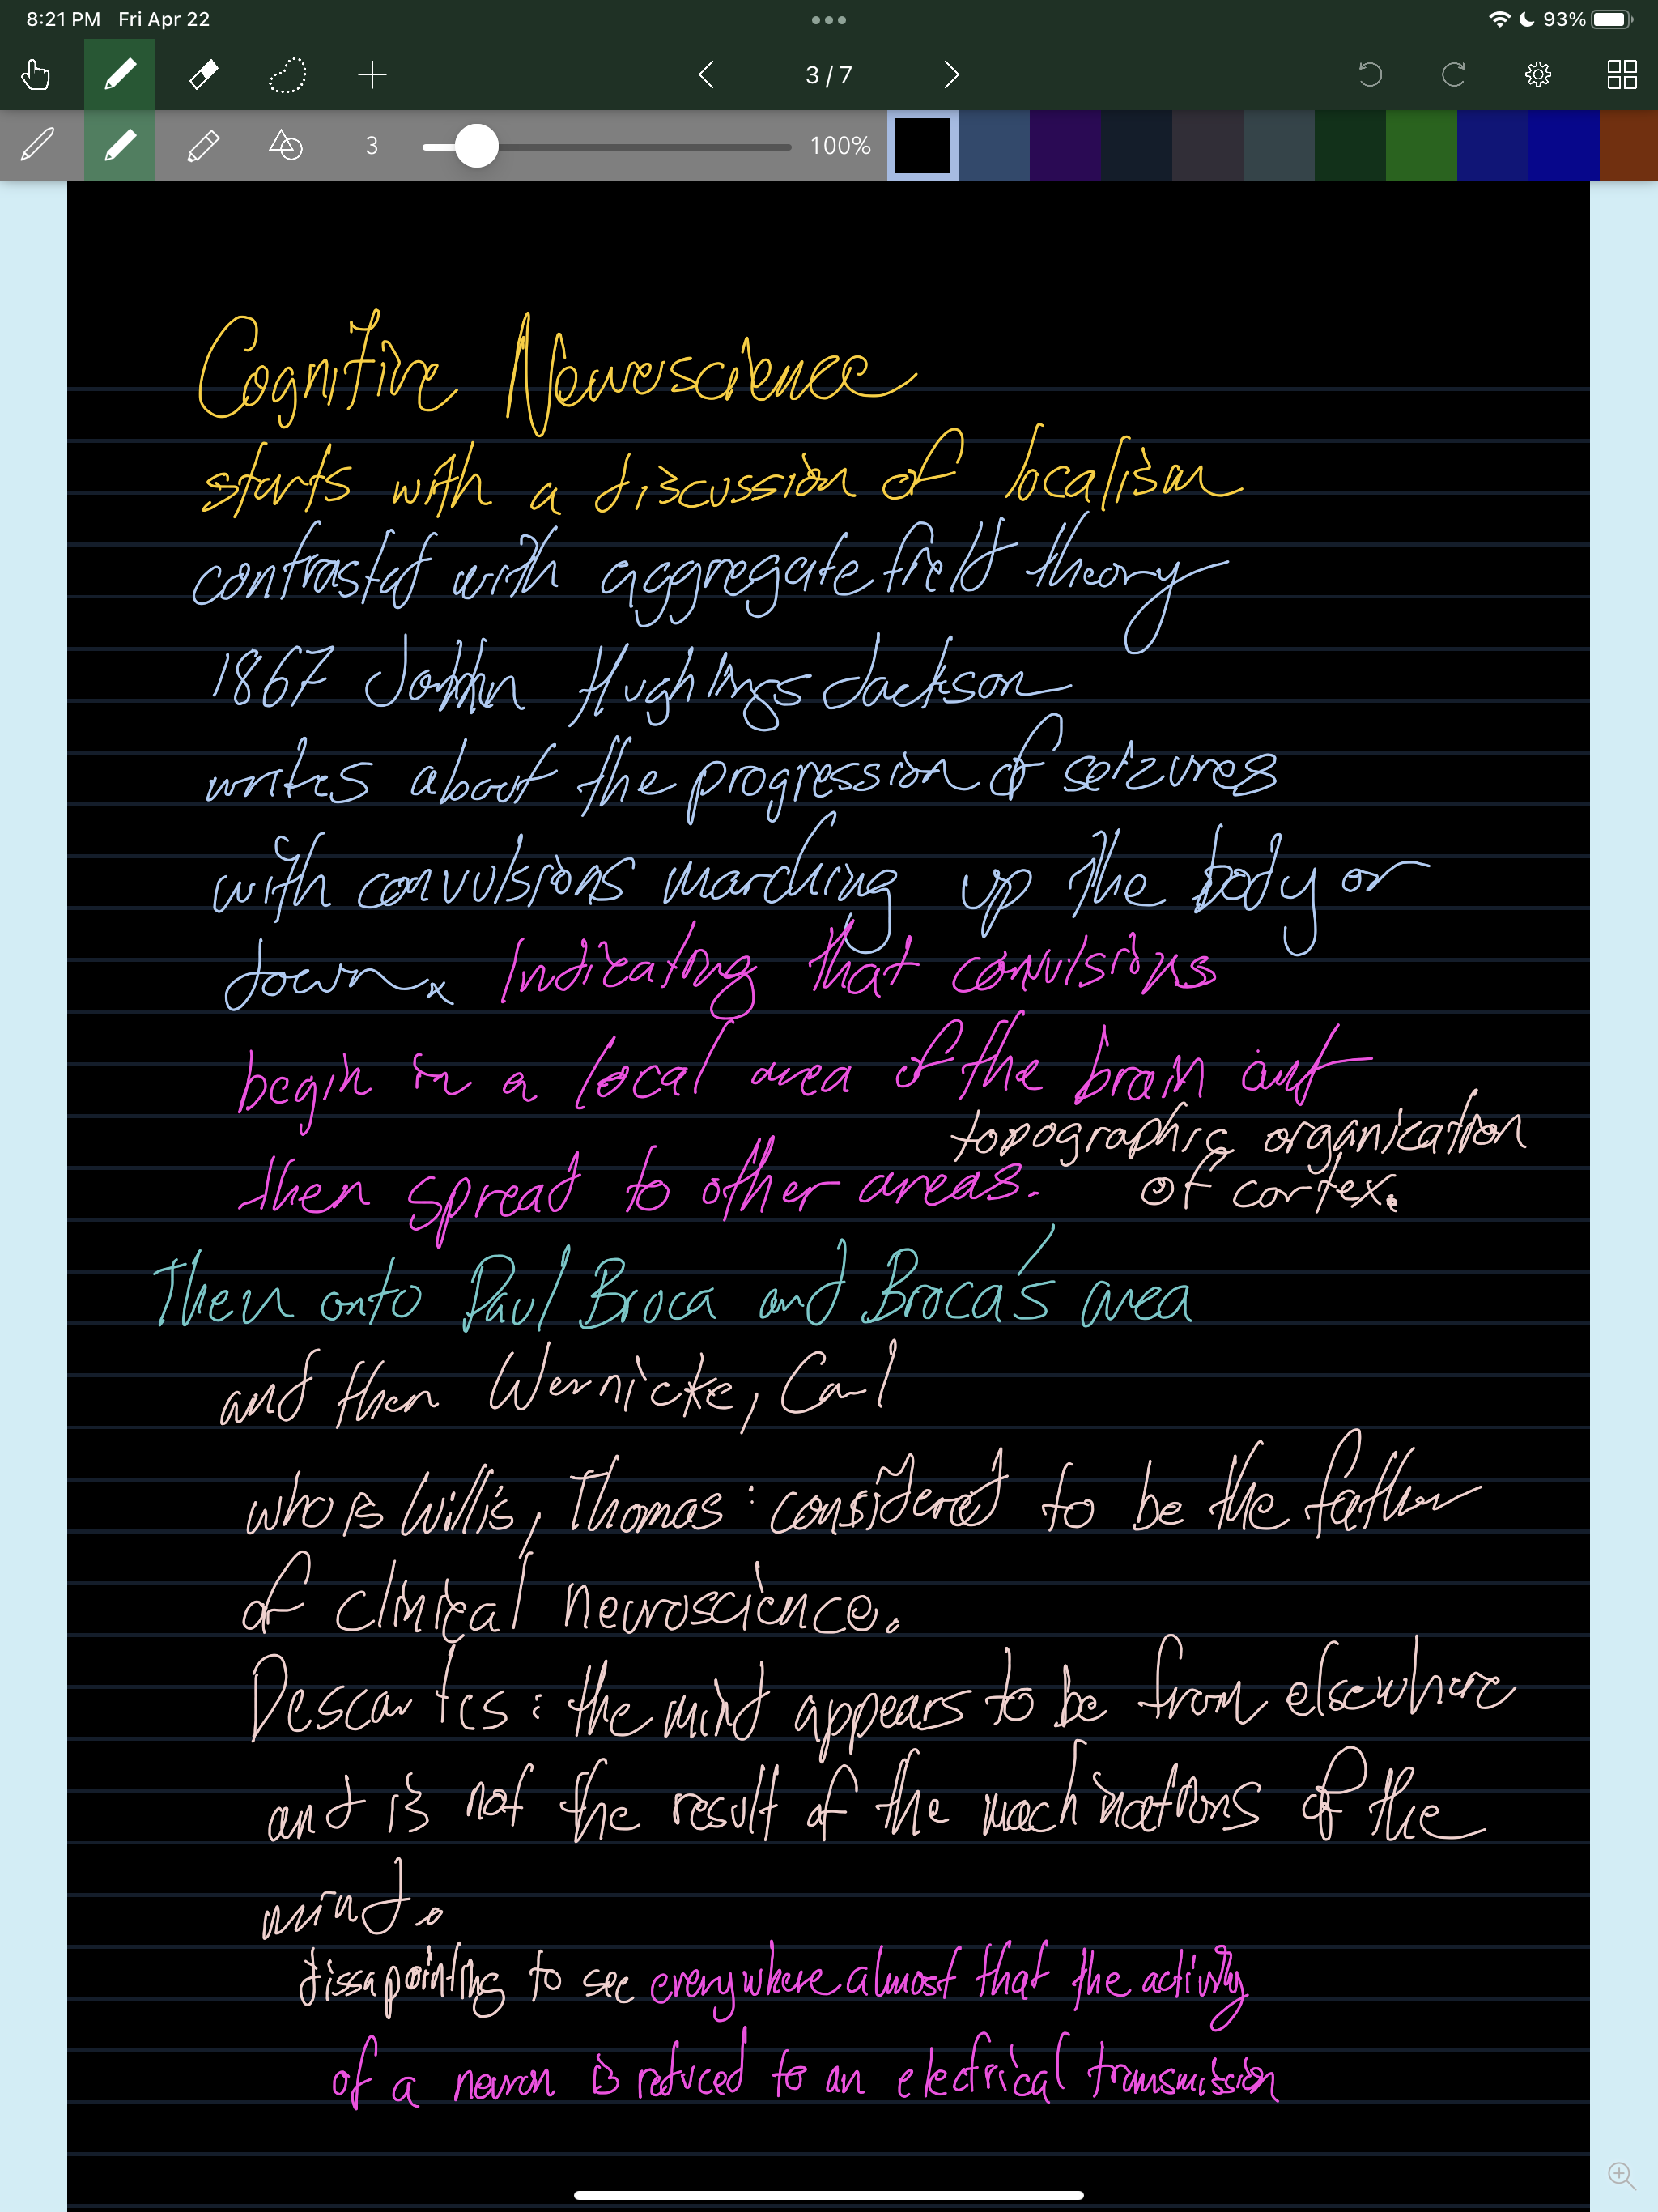 8:21 PM Fri Apr 22
93%
3/7
3
100%
Cognitive Neuroscience
starts with a discussion of localism
contrasted with aggregate field theory
1867 John Hughlings Jackson
writes about the progression of seizures
with convulsions marching up the body or
down. Indicating that convulsions
begin in a local area of the brain and
topographic organization
then spread to other areas. of cortex.
Then onto Paul Broca and Broca's area
and then Wernicke, Carl
who is Willis, Thomas: considered to be the father
of clinical neuroscience.
Descartes: the mind appears to be from elsewhere
and is not the result of the machinations of the
mind.
dissapointing to see everywhere almost that the activity
of a neuron is reduced to an electrical transmission